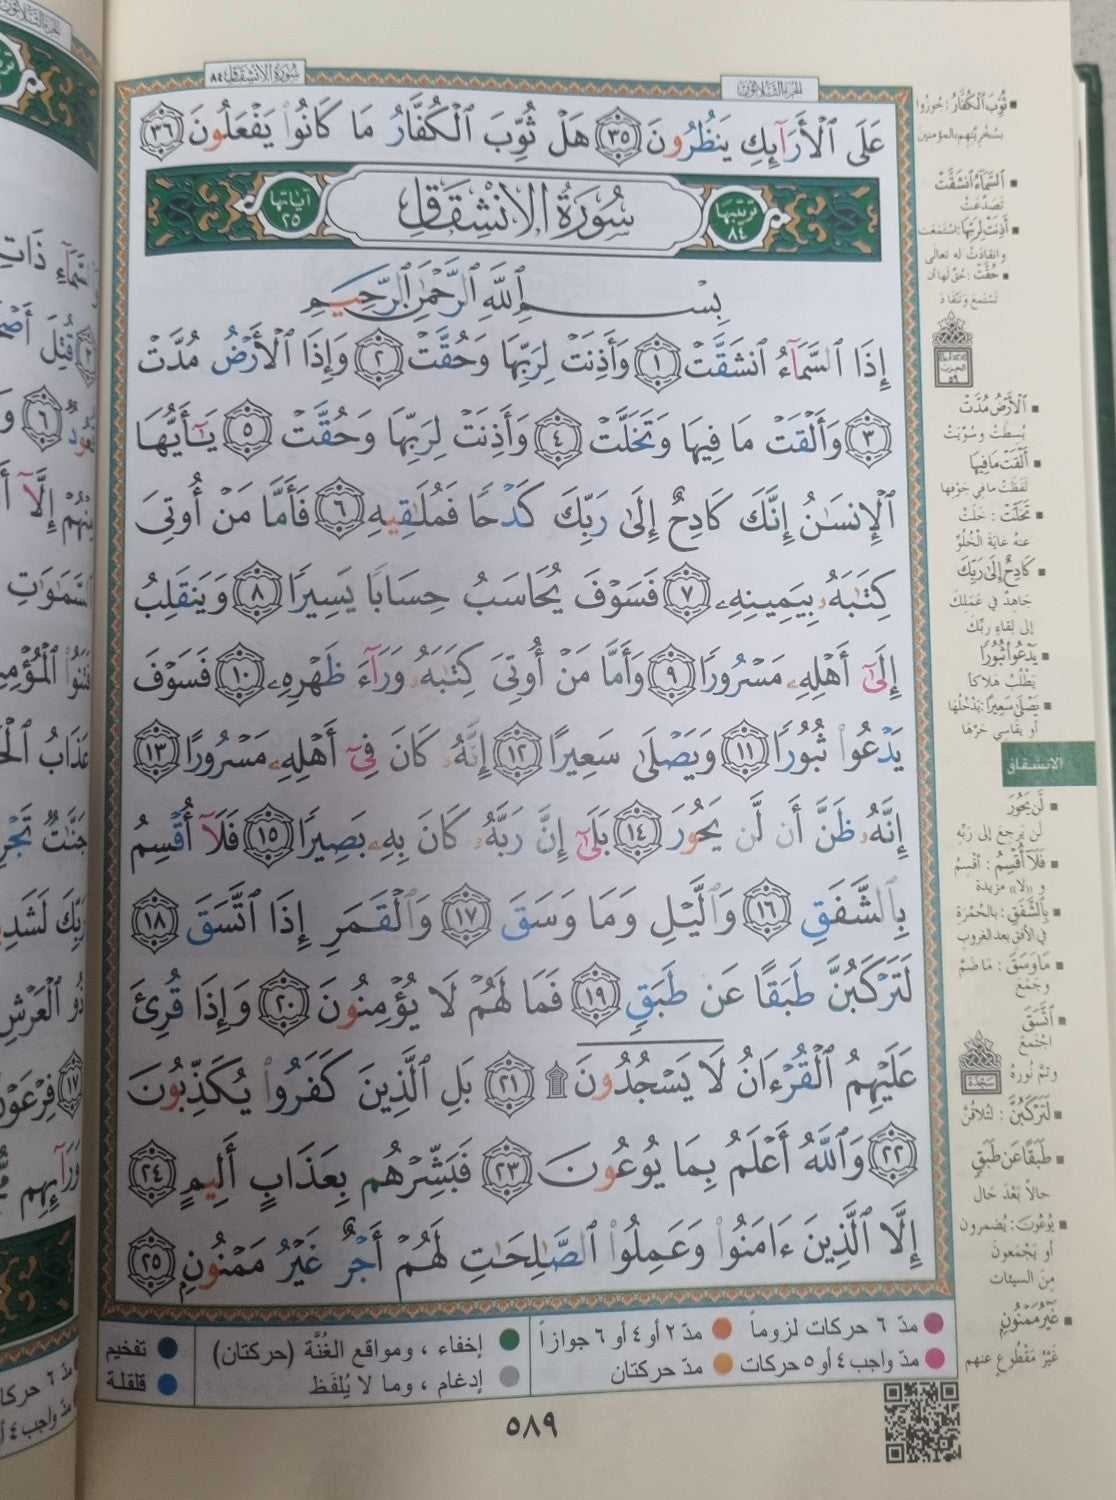 سُورَةُ الانشِقَاق ٨٤
الجزء الثلاثون
عَلَى ٱلْأَرَآئِكِ يَنظُرُونَ ٣٥ هَلْ ثُوِّبَ ٱلْكُفَّارُ مَا كَانُوا۟ يَفْعَلُونَ ٣٦
ترتيبها ٨٤
سُورَةُ الانْشِقَاقِ
آياتها ٢٥
بِسْمِ ٱللَّهِ ٱلرَّحْمَٰنِ ٱلرَّحِيمِ
إِذَا ٱلسَّمَآءُ ٱنشَقَّتْ ١ وَأَذِنَتْ لِرَبِّهَا وَحُقَّتْ ٢ وَإِذَا ٱلْأَرْضُ مُدَّتْ
٣ وَأَلْقَتْ مَا فِيهَا وَتَخَلَّتْ ٤ وَأَذِنَتْ لِرَبِّهَا وَحُقَّتْ ٥ يَٰٓأَيُّهَا
ٱلْإِنسَٰنُ إِنَّكَ كَادِحٌ إِلَىٰ رَبِّكَ كَدْحًا فَمُلَٰقِيهِ ٦ فَأَمَّا مَنْ أُوتِىَ
كِتَٰبَهُۥ بِيَمِينِهِۦ ٧ فَسَوْفَ يُحَاسَبُ حِسَابًا يَسِيرًا ٨ وَيَنقَلِبُ
إِلَىٰٓ أَهْلِهِۦ مَسْرُورًا ٩ وَأَمَّا مَنْ أُوتِىَ كِتَٰبَهُۥ وَرَآءَ ظَهْرِهِۦ ١٠ فَسَوْفَ
يَدْعُوا۟ ثُبُورًا ١١ وَيَصْلَىٰ سَعِيرًا ١٢ إِنَّهُۥ كَانَ فِىٓ أَهْلِهِۦ مَسْرُورًا ١٣
إِنَّهُۥ ظَنَّ أَن لَّن يَحُورَ ١٤ بَلَىٰٓ إِنَّ رَبَّهُۥ كَانَ بِهِۦ بَصِيرًا ١٥ فَلَآ أُقْسِمُ
بِٱلشَّفَقِ ١٦ وَٱلَّيْلِ وَمَا وَسَقَ ١٧ وَٱلْقَمَرِ إِذَا ٱتَّسَقَ ١٨
لَتَرْكَبُنَّ طَبَقًا عَن طَبَقٍ ١٩ فَمَا لَهُمْ لَا يُؤْمِنُونَ ٢٠ وَإِذَا قُرِئَ
عَلَيْهِمُ ٱلْقُرْءَانُ لَا يَسْجُدُونَ ۩ ٢١ بَلِ ٱلَّذِينَ كَفَرُوا۟ يُكَذِّبُونَ
٢٢ وَٱللَّهُ أَعْلَمُ بِمَا يُوعُونَ ٢٣ فَبَشِّرْهُم بِعَذَابٍ أَلِيمٍ ٢٤
إِلَّا ٱلَّذِينَ ءَامَنُوا۟ وَعَمِلُوا۟ ٱلصَّٰلِحَٰتِ لَهُمْ أَجْرٌ غَيْرُ مَمْنُونٍۭ ٢٥
ثُوِّبَ الكُفَّارُ: جُوزُوا
بسُخْريتِهِم بالمؤمنين
السَّمَآءُ انشَقَّتْ
تَصَدَّعَتْ
أَذِنَتْ لِرَبِّهَا: اسْتَمَعَت
وانقادَتْ له تعالى
حُقَّتْ: حُقَّ لها أن
تَسْتَمِعَ وَتَنْقَادَ
٥٩
الْأَرْضُ مُدَّتْ
بُسِطَتْ وسُوِّيَتْ
أَلْقَتْ مَا فِيهَا
لَفَظَتْ ما في جَوْفِها
تَخَلَّتْ: خَلَتْ
عنه غايَةَ الخُلُوِّ
كَادِحٌ إِلَىٰ رَبِّكَ
جَاهِدٌ في عَمَلِكَ
إلى لِقاءِ ربِّك
يَدْعُوا ثُبُورًا
يَطْلُبُ هَلاكاً
يَصْلَىٰ سَعِيرًا: يَدْخُلُها
أو يُقاسِي حَرَّها
الانشقاق
لَّن يَحُورَ
لَن يَرجِعَ إلى رَبِّهِ
فَلَا أُقْسِمُ: أقْسِمُ
و «لا» مزيدة
بِالشَّفَقِ: بالحُمْرَةِ
في الأفقِ بعد الغروبِ
مَا وَسَقَ: ما ضَمَّ
وجَمَعَ
اتَّسَقَ
اجْتَمَعَ
وتمَّ نورُهُ
سجدة
لَتَرْكَبُنَّ: لَتُلاقُنَّ
طَبَقًا عَن طَبَقٍ
حالاً بَعْدَ حَال
يُوعُونَ: يُضمرون
أو يَجْمَعونَ
مِنَ السيئات
غَيْرُ مَمْنُونٍ
غَيْرُ مَقْطُوعٍ عنهم
مدّ ٦ حركات لزوماً
مدّ ٢ أو ٤ أو ٦ جوازاً
إخفاء، ومواقع الغُنَّة (حركتان)
تفخيم
مدّ واجب ٤ أو ٥ حركات
مدّ حركتان
إدغام، وما لا يُلفَظ
قلقلة
٥٨٩